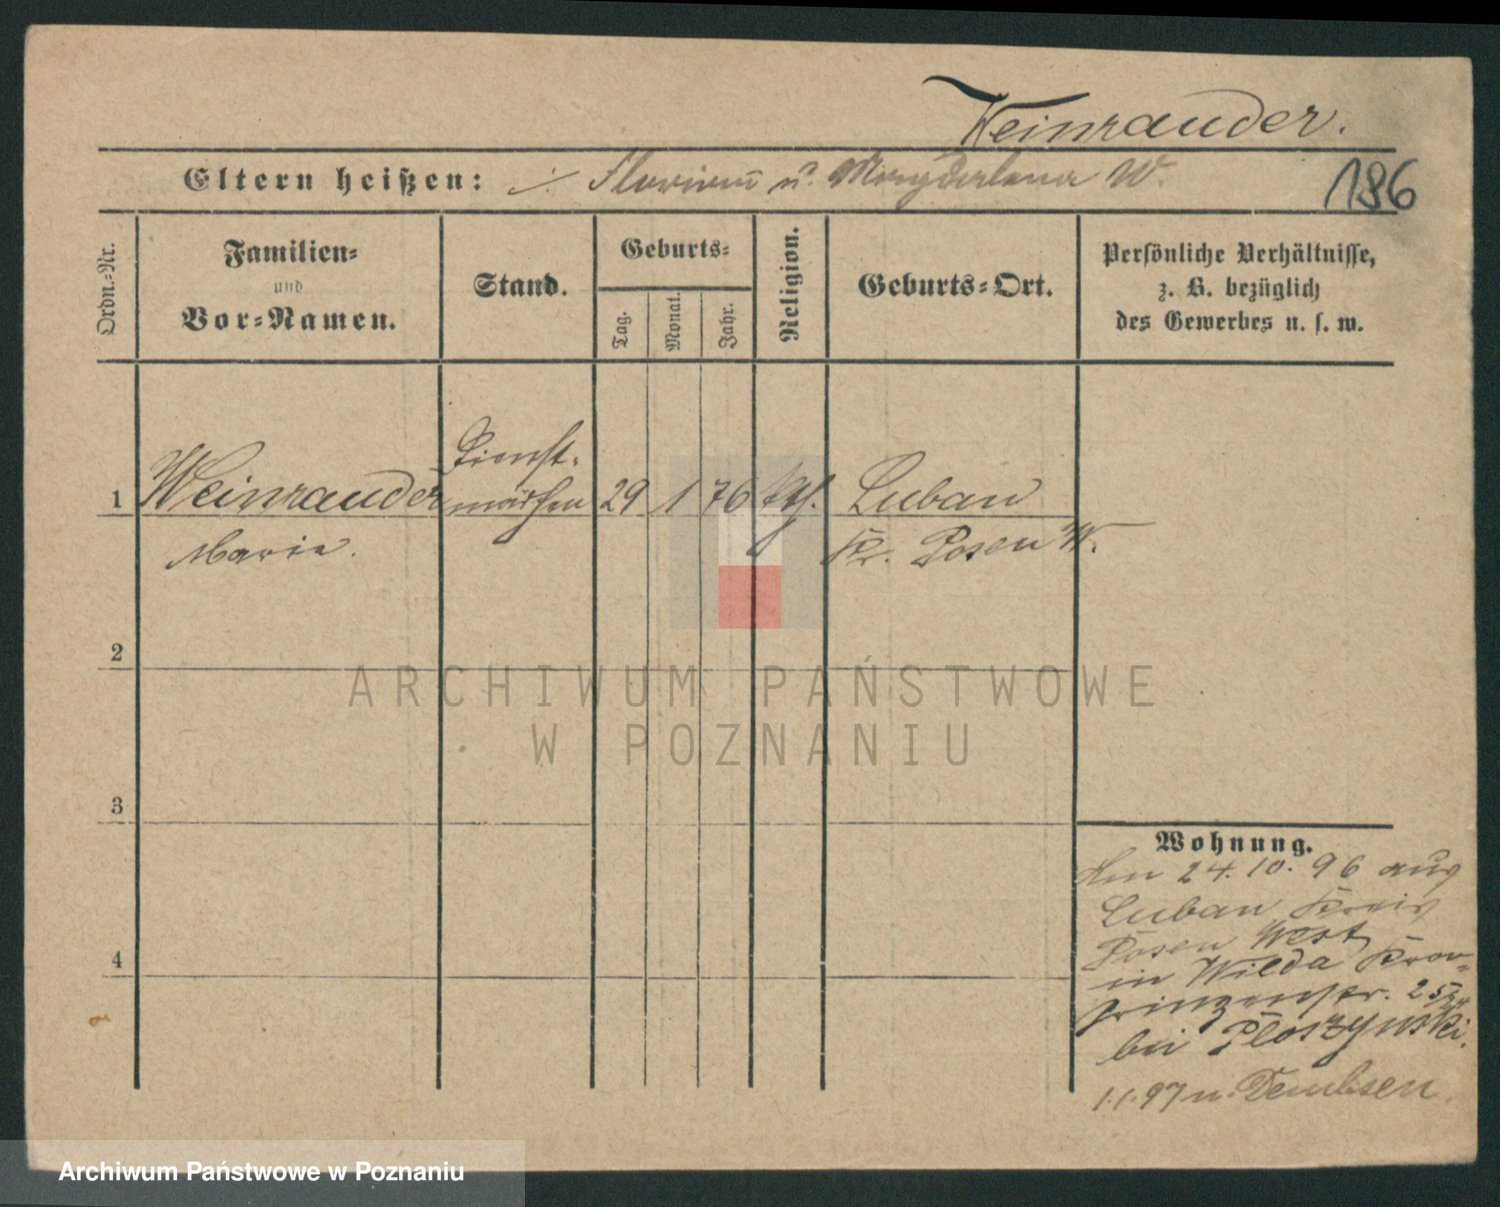 Weinrander.
Eltern heißen: ./. Florian u. Magdalena W.
186
Ordn.-Nr.
Familien-
und
Vor-Namen.
Stand.
Geburts-
Tag.
Monat.
Jahr.
Religion.
Geburts-Ort.
Persönliche Verhältnisse,
z. B. bezüglich
des Gewerbes u. s. w.
Dienst-
1 Weinrander mädchen 29 1 76 kth. Luban
Marie. Kr. Posen W.
2
ARCHIWUM PAŃSTWOWE
W POZNANIU
3
Wohnung.
Am 24.10.96 aus
Luban Kreis
Posen West
4
in Wilda Kron-
prinzenstr. 25
bei Ploszynski.
1.1.97 n. Dembsen.
Archiwum Państwowe w Poznaniu